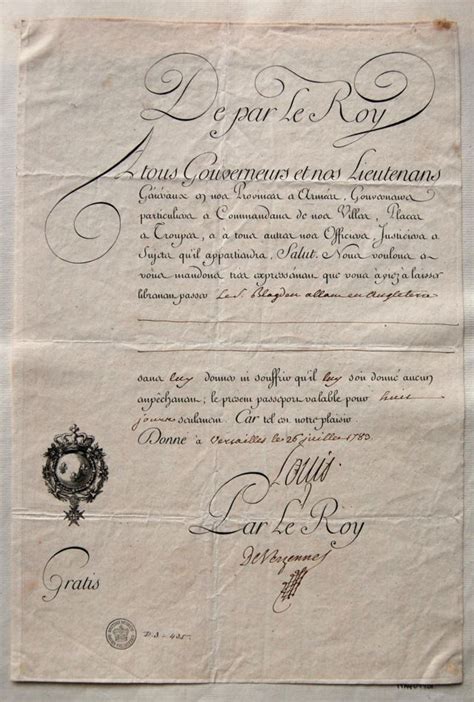 De par le Roy
A tous Gouverneurs et nos Lieutenans
Généraux en nos Provinces et Armées, Gouverneurs
particuliers et Commandans de nos Villes, Places
et Troupes, et à tous autres nos Officiers, Justiciers et
Sujets qu'il appartiendra, Salut. Nous voulons et
vous mandons très expressément que vous ayiez à laisser
librement passer le S. Blagden allant en Angleterre
sans luy donner ni souffrir qu'il luy soit donné aucun
empêchement; le présent passeport valable pour huit
jours seulement Car tel est notre plaisir
Donné à Versailles le 26 juillet 1783
Louis
Par le Roy
De Vergennes
Gratis
D.3-435